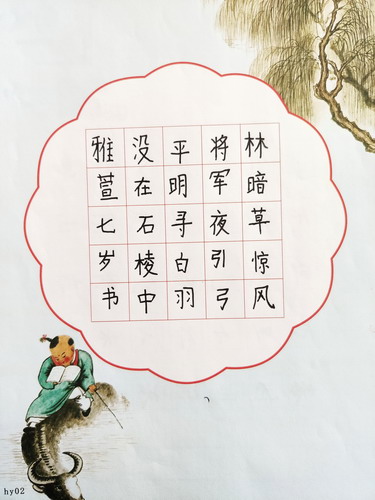 林暗草惊风
将军夜引弓
平明寻白羽
没在石棱中
雅萱七岁书
hy02